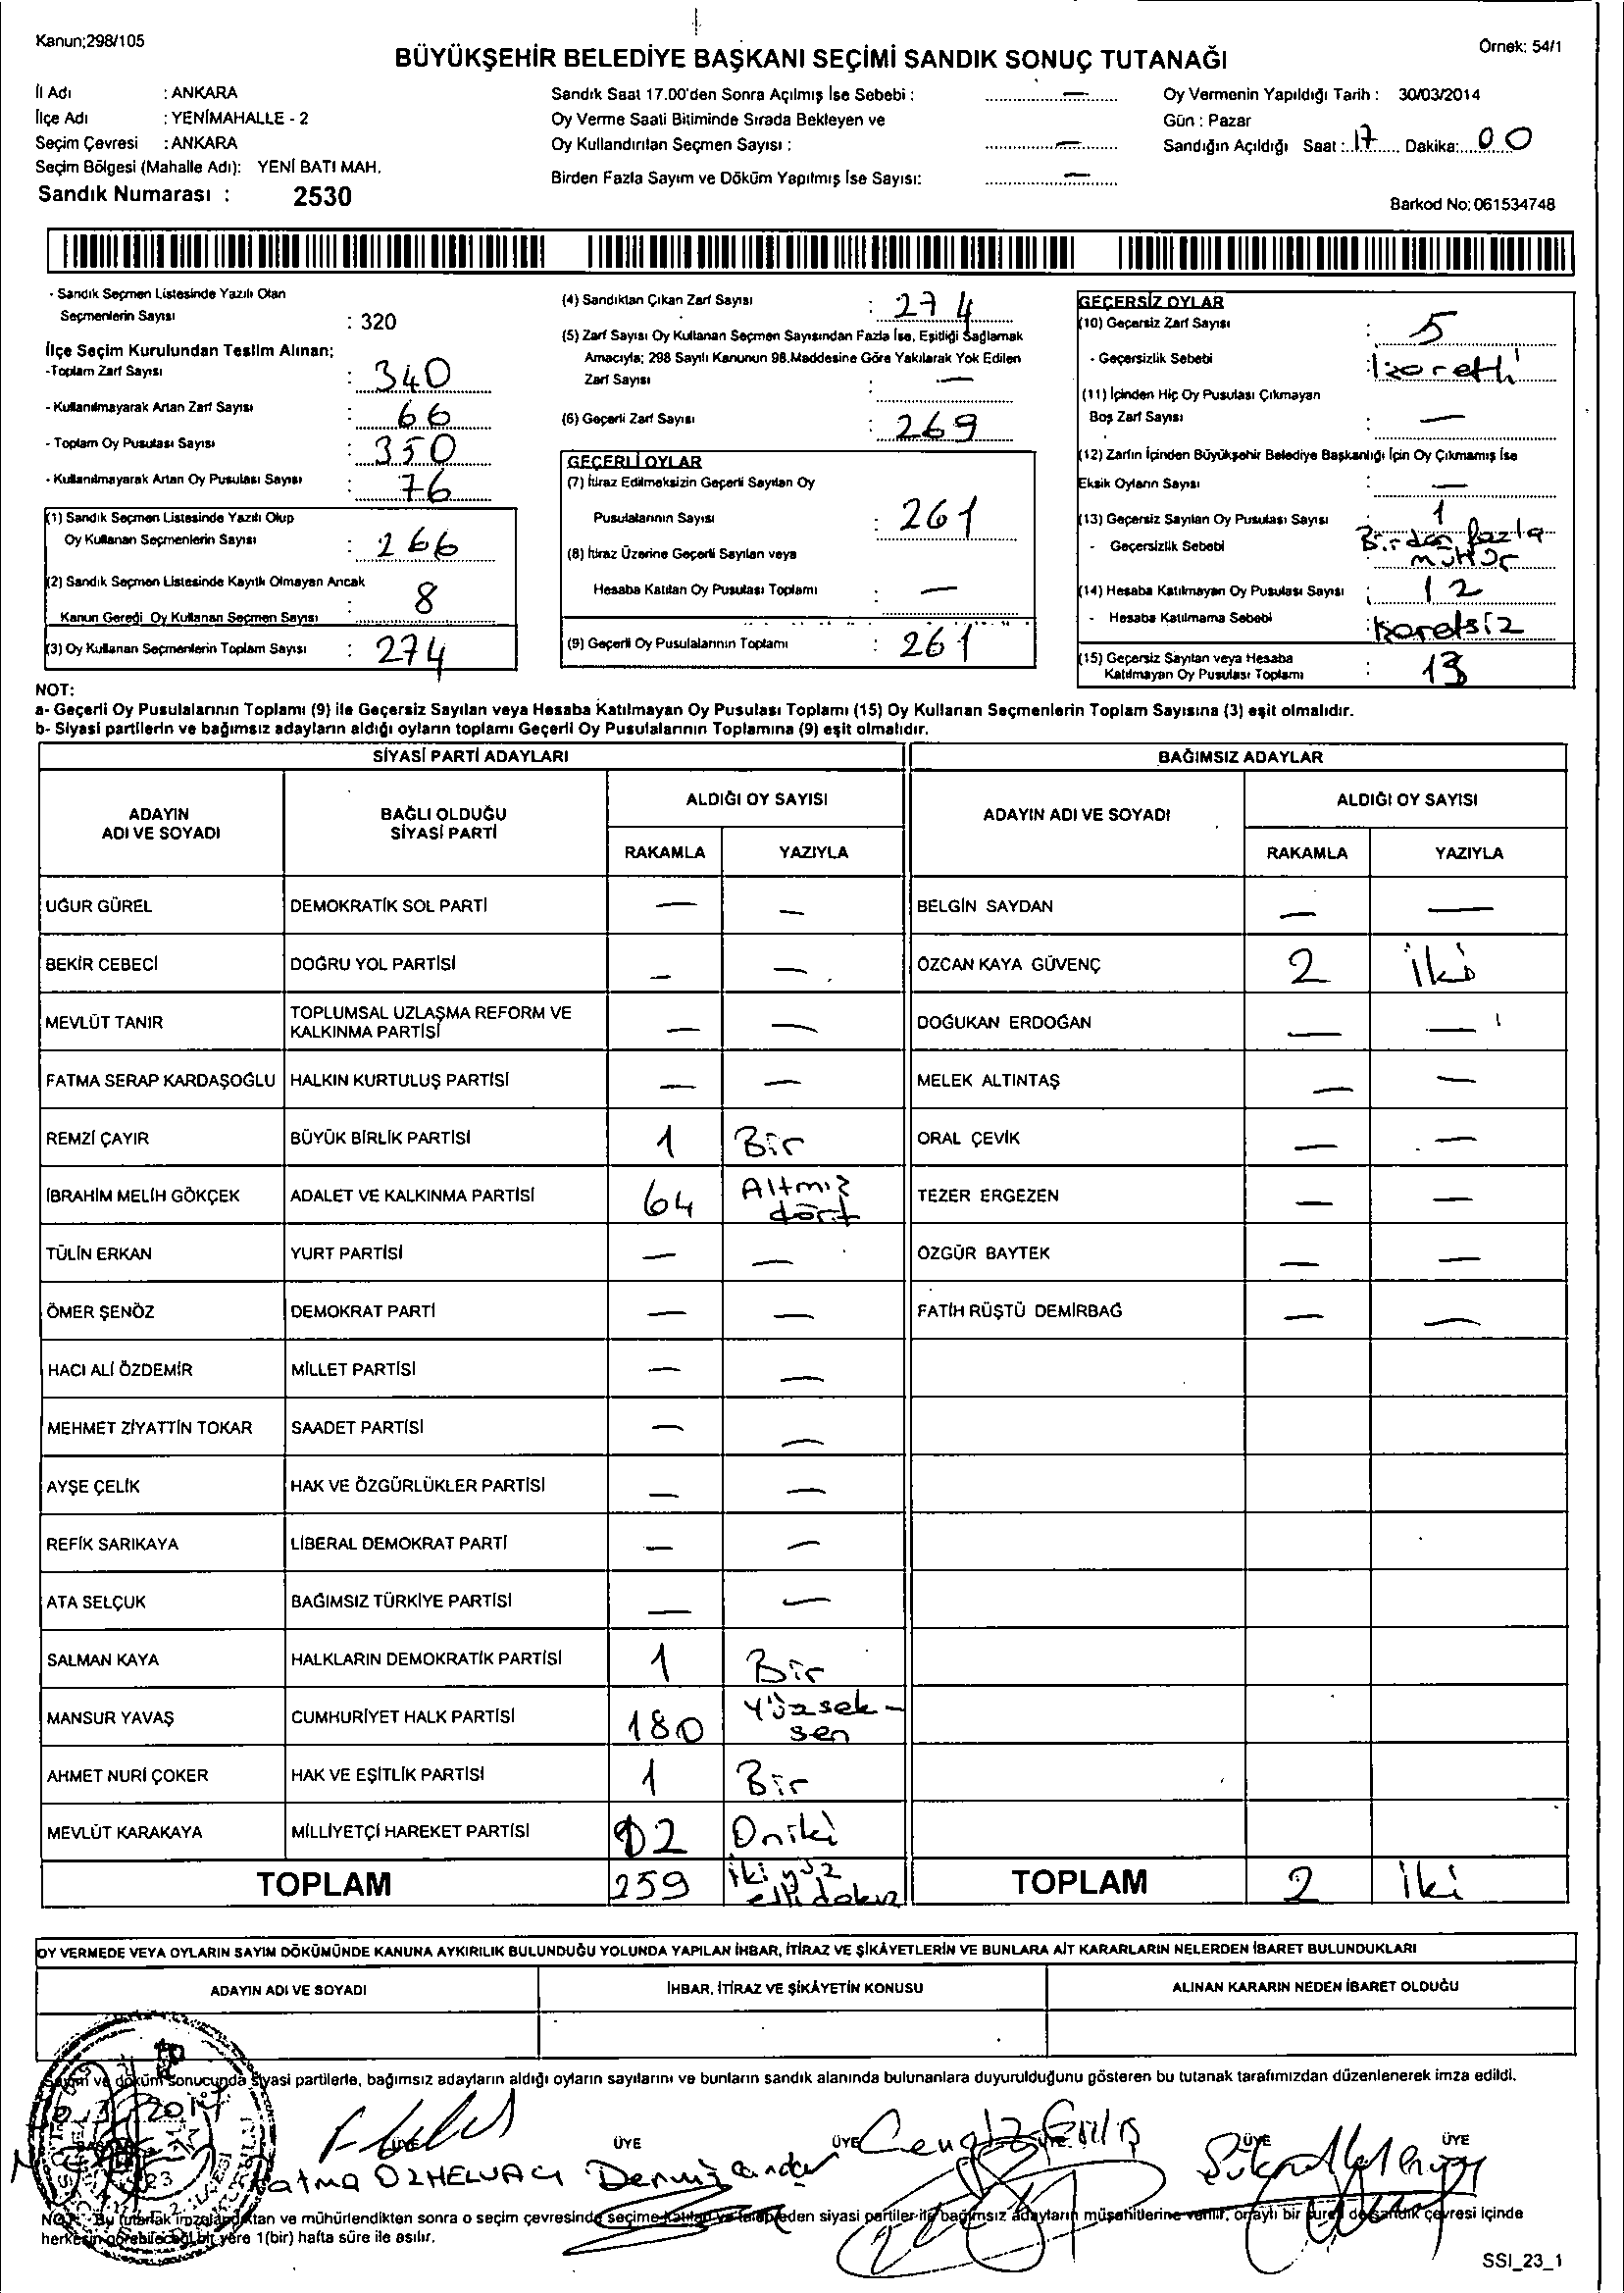 Kanun;298/105
Örnek: 54/1
BÜYÜKŞEHİR BELEDİYE BAŞKANI SEÇİMİ SANDIK SONUÇ TUTANAĞI
İl Adı : ANKARA
İlçe Adı : YENİMAHALLE - 2
Seçim Çevresi : ANKARA
Seçim Bölgesi (Mahalle Adı): YENİ BATI MAH.
Sandık Numarası : 2530
Sandık Saat 17.00'den Sonra Açılmış İse Sebebi : —
Oy Verme Saati Bitiminde Sırada Bekleyen ve
Oy Kullandırılan Seçmen Sayısı : —
Birden Fazla Sayım ve Döküm Yapılmış İse Sayısı: —
Oy Vermenin Yapıldığı Tarih : 30/03/2014
Gün : Pazar
Sandığın Açıldığı Saat : 17 Dakika: 00
Barkod No: 061534748
- Sandık Seçmen Listesinde Yazılı Olan
Seçmenlerin Sayısı : 320
İlçe Seçim Kurulundan Teslim Alınan;
-Toplam Zarf Sayısı : 340
- Kullanılmayarak Artan Zarf Sayısı : 66
- Toplam Oy Pusulası Sayısı : 350
- Kullanılmayarak Artan Oy Pusulası Sayısı : 76
(1) Sandık Seçmen Listesinde Yazılı Olup
Oy Kullanan Seçmenlerin Sayısı : 266
(2) Sandık Seçmen Listesinde Kayıtlı Olmayan Ancak
Kanun Gereği Oy Kullanan Seçmen Sayısı : 8
(3) Oy Kullanan Seçmenlerin Toplam Sayısı : 274
(4) Sandıktan Çıkan Zarf Sayısı : 274
(5) Zarf Sayısı Oy Kullanan Seçmen Sayısından Fazla İse, Eşitliği Sağlamak
Amacıyla; 298 Sayılı Kanunun 98.Maddesine Göre Yakılarak Yok Edilen
Zarf Sayısı : —
(6) Geçerli Zarf Sayısı : 269
GEÇERLİ OYLAR
(7) İtiraz Edilmeksizin Geçerli Sayılan Oy
Pusulalarının Sayısı : 261
(8) İtiraz Üzerine Geçerli Sayılan veya
Hesaba Katılan Oy Pusulası Toplamı : —
(9) Geçerli Oy Pusulalarının Toplamı : 261
GEÇERSİZ OYLAR
(10) Geçersiz Zarf Sayısı : 5
- Geçersizlik Sebebi : İzaretli
(11) İçinden Hiç Oy Pusulası Çıkmayan
Boş Zarf Sayısı : —
(12) Zarfın İçinden Büyükşehir Belediye Başkanlığı İçin Oy Çıkmamış İse
Eksik Oyların Sayısı : —
(13) Geçersiz Sayılan Oy Pusulası Sayısı : 1
- Geçersizlik Sebebi Birden fazla
mühür
(14) Hesaba Katılmayan Oy Pusulası Sayısı : 12
- Hesaba Katılmama Sebebi :
(15) Geçersiz Sayılan veya Hesaba
Katılmayan Oy Pusulası Toplamı : 13
NOT:
a- Geçerli Oy Pusulalarının Toplamı (9) ile Geçersiz Sayılan veya Hesaba Katılmayan Oy Pusulası Toplamı (15) Oy Kullanan Seçmenlerin Toplam Sayısına (3) eşit olmalıdır.
b- Siyasi partilerin ve bağımsız adayların aldığı oyların toplamı Geçerli Oy Pusulalarının Toplamına (9) eşit olmalıdır.
SİYASİ PARTİ ADAYLARI
ADAYIN ADI VE SOYADI BAĞLI OLDUĞU SİYASİ PARTİ ALDIĞI OY SAYISI
RAKAMLA YAZIYLA
UĞUR GÜREL DEMOKRATİK SOL PARTİ — —
BEKİR CEBECİ DOĞRU YOL PARTİSİ — —
MEVLÜT TANIR TOPLUMSAL UZLAŞMA REFORM VE KALKINMA PARTİSİ — —
FATMA SERAP KARDAŞOĞLU HALKIN KURTULUŞ PARTİSİ — —
REMZİ ÇAYIR BÜYÜK BİRLİK PARTİSİ 1 Bir
İBRAHİM MELİH GÖKÇEK ADALET VE KALKINMA PARTİSİ 64 Altmız dört
TÜLİN ERKAN YURT PARTİSİ — —
ÖMER ŞENÖZ DEMOKRAT PARTİ — —
HACI ALİ ÖZDEMİR MİLLET PARTİSİ — —
MEHMET ZİYATTİN TOKAR SAADET PARTİSİ — —
AYŞE ÇELİK HAK VE ÖZGÜRLÜKLER PARTİSİ — —
REFİK SARIKAYA LİBERAL DEMOKRAT PARTİ — —
ATA SELÇUK BAĞIMSIZ TÜRKİYE PARTİSİ — —
SALMAN KAYA HALKLARIN DEMOKRATİK PARTİSİ 1 Bir
MANSUR YAVAŞ CUMHURİYET HALK PARTİSİ 180 Yüzsek-sen
AHMET NURİ ÇOKER HAK VE EŞİTLİK PARTİSİ 1 Bir
MEVLÜT KARAKAYA MİLLİYETÇİ HAREKET PARTİSİ 12 Oniki
TOPLAM 259 iki yüz elli dokuz
BAĞIMSIZ ADAYLAR
ADAYIN ADI VE SOYADI ALDIĞI OY SAYISI
RAKAMLA YAZIYLA
BELGİN SAYDAN — —
ÖZCAN KAYA GÜVENÇ 2 iki
DOĞUKAN ERDOĞAN — —
MELEK ALTINTAŞ — —
ORAL ÇEVİK — —
TEZER ERGEZEN — —
ÖZGÜR BAYTEK — —
FATİH RÜŞTÜ DEMİRBAĞ — —
TOPLAM 2 iki
OY VERMEDE VEYA OYLARIN SAYIM DÖKÜMÜNDE KANUNA AYKIRILIK BULUNDUĞU YOLUNDA YAPILAN İHBAR, İTİRAZ VE ŞİKÂYETLERİN VE BUNLARA AİT KARARLARIN NELERDEN İBARET BULUNDUKLARI
ADAYIN ADI VE SOYADI İHBAR, İTİRAZ VE ŞİKÂYETİN KONUSU ALINAN KARARIN NEDEN İBARET OLDUĞU
Sayım ve döküm sonucunda siyasi partilerle, bağımsız adayların aldığı oyların sayılarını ve bunların sandık alanında bulunanlara duyurulduğunu gösteren bu tutanak tarafımızdan düzenlenerek imza edildi.
ÜYE ÜYE ÜYE ÜYE ÜYE
Fatma Cengiz
NOT: Bu tutanak imzalandıktan ve mühürlendikten sonra o seçim çevresinde seçime katılan ve talep eden siyasi partiler ile bağımsız adayların müşahitlerine verilir, onaylı bir sureti de sandık çevresi içinde
herkesin görebileceği bir yere 1(bir) hafta süre ile asılır.
SSI_23_1